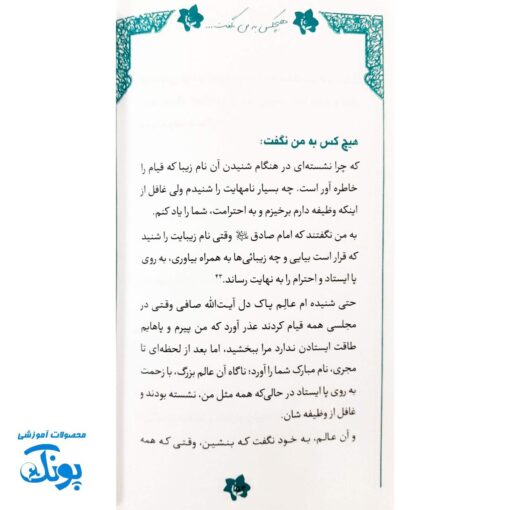 هیچکس به من نگفت...
هیچ کس به من نگفت:
که چرا نشسته‌ای در هنگام شنیدن آن نام زیبا که قیام را
خاطره آور است. چه بسیار نامهایت را شنیدم ولی غافل از
اینکه وظیفه دارم برخیزم و به احترامت، شما را یاد کنم.
به من نگفتند که امام صادق وقتی نام زیبایت را شنید
که قرار است بیایی و چه زیبائی‌ها به همراه بیاوری، به روی
پا ایستاد و احترام را به نهایت رساند.۴۳
حتی شنیده ام عالِم پاک دل آیت‌الله صافی وقتی در
مجلسی همه قیام کردند عذر آورد که من پیرم و پاهایم
طاقت ایستادن ندارد مرا ببخشید، اما بعد از لحظه‌ای تا
مجری، نام مبارک شما را آورد؛ ناگاه آن عالم بزرگ، با زحمت
به روی پا ایستاد در حالی‌که همه مثل من، نشسته بودند و
غافل از وظیفه شان.
و آن عالم، به خود نگفت که بنشین، وقتی که همه
محصولات آموزشی
پونک